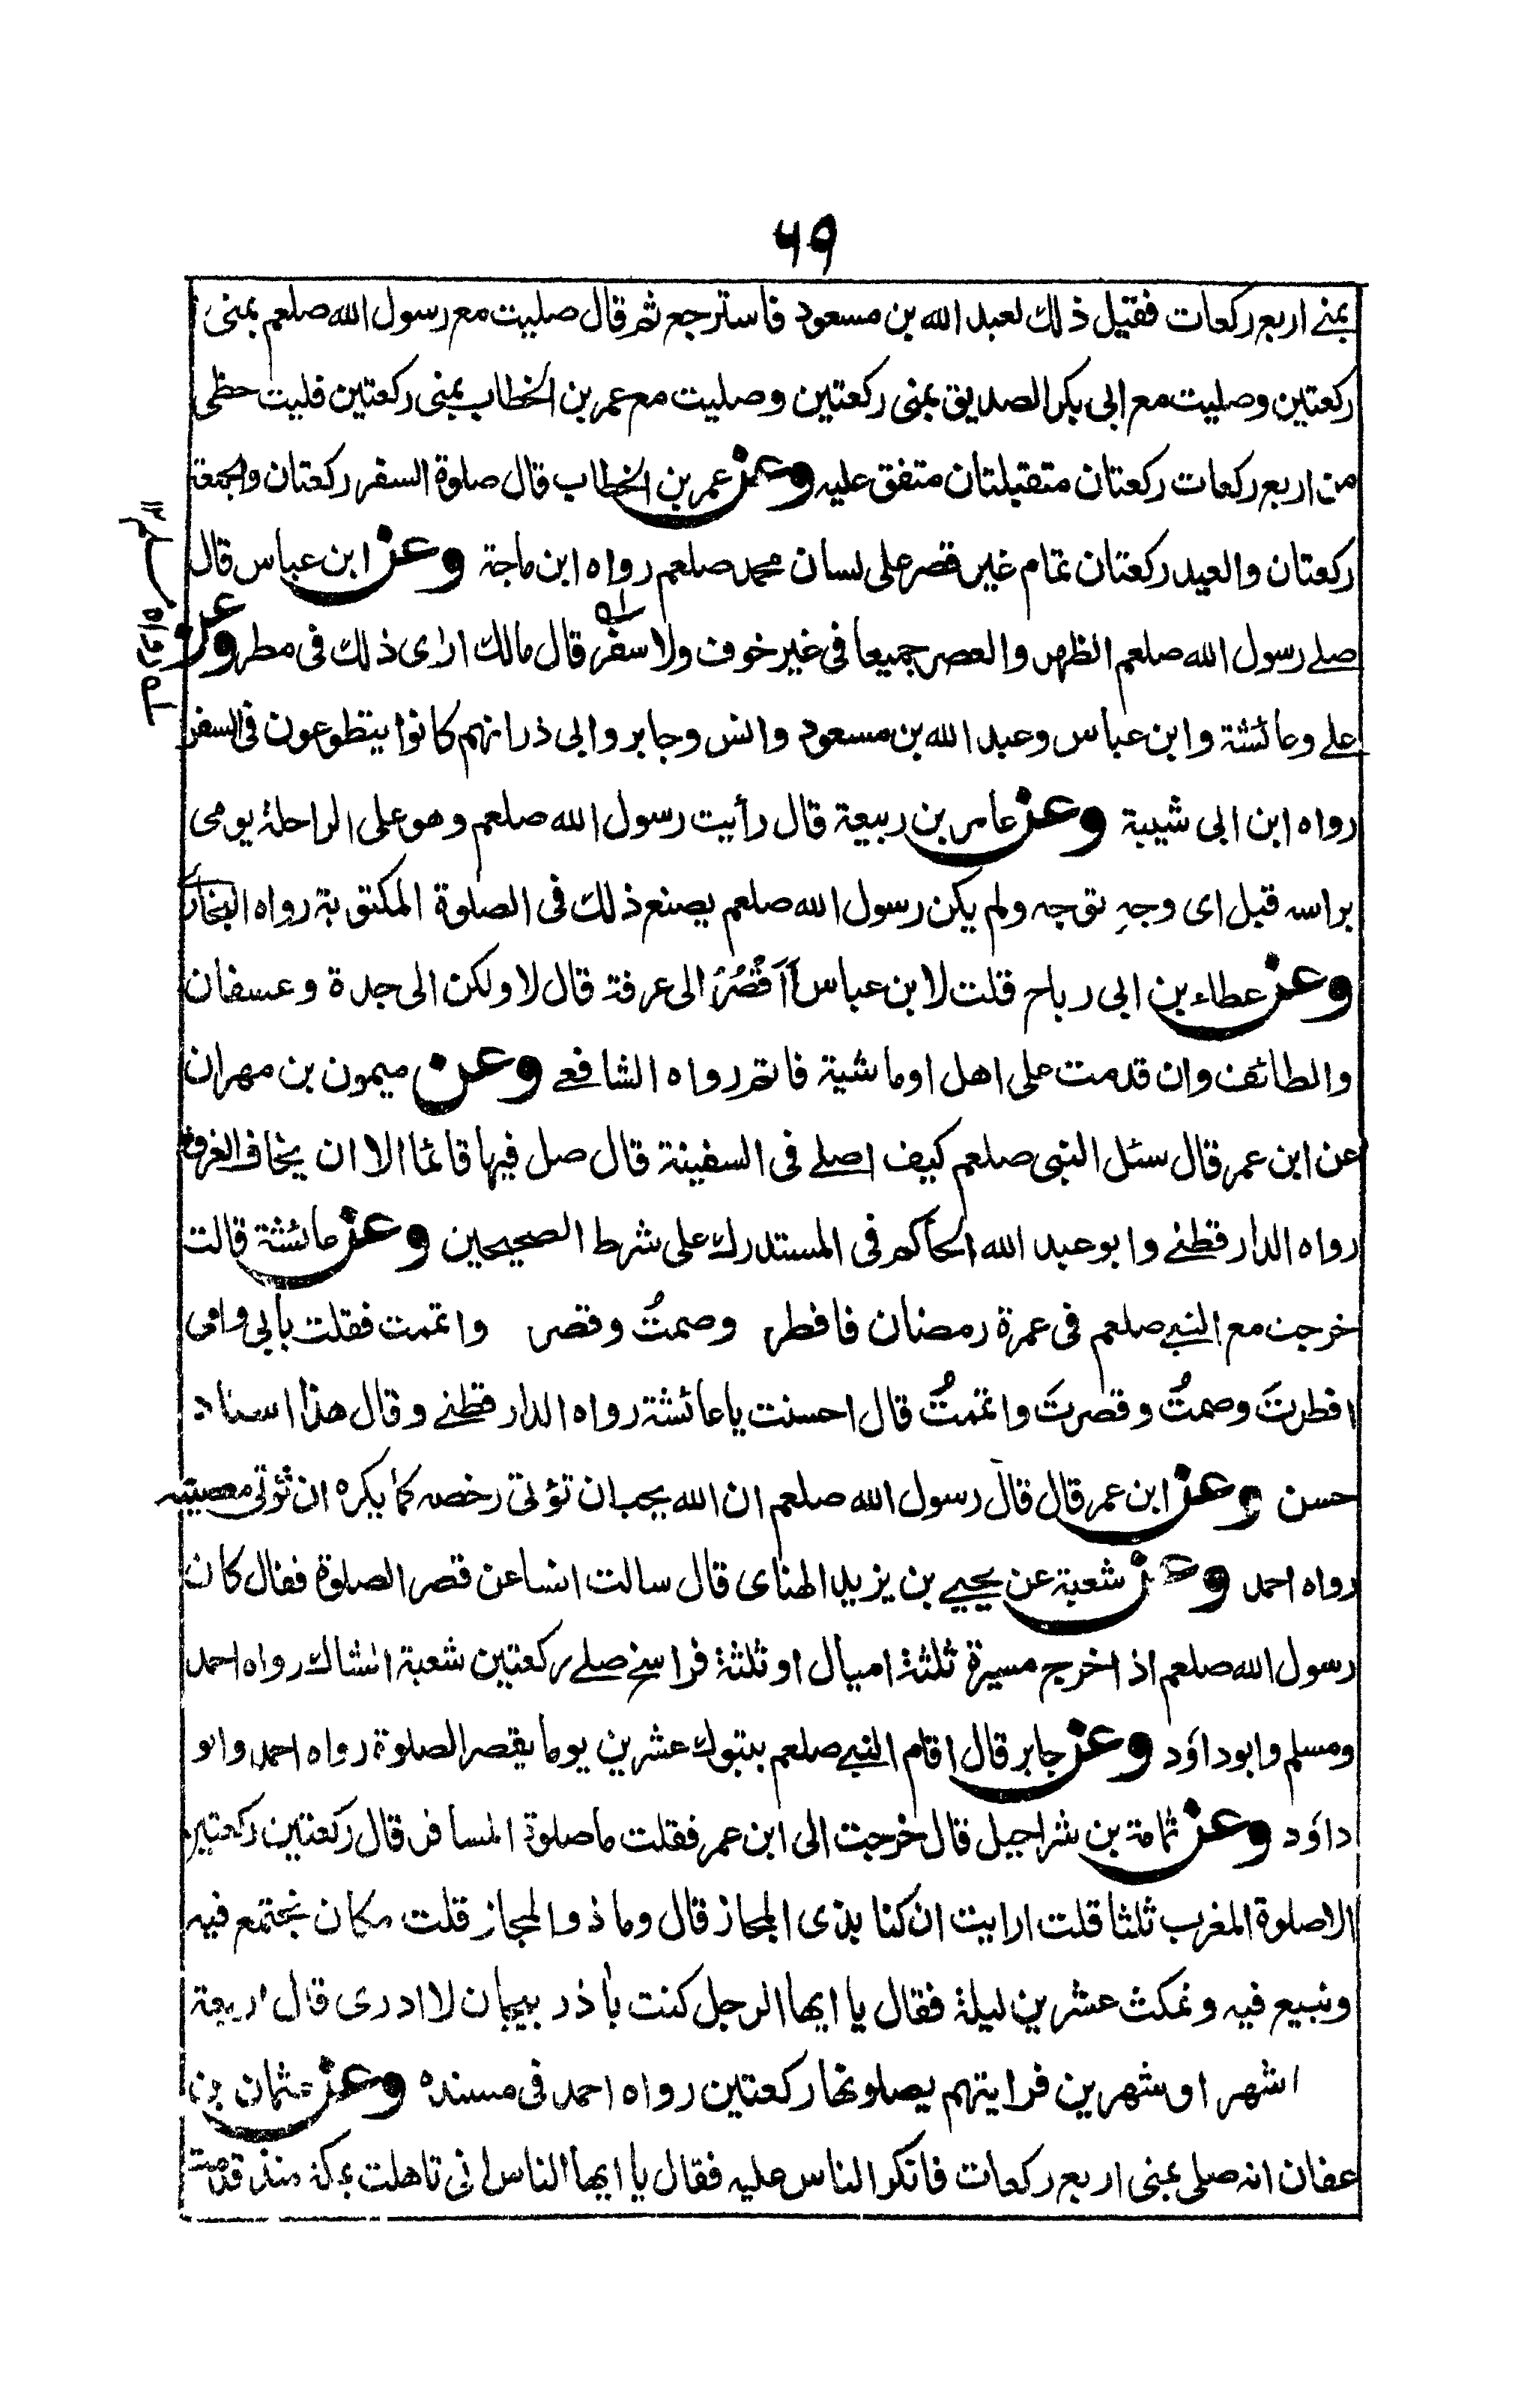 ۶۹
بمنے اربع ركعات فقيل ذلك لعبد الله بن مسعود فاسترجع ثم قال صليت مع رسول الله صلعم بمنى
ركعتين وصليت مع ابى بكر الصديق بمنى ركعتين وصليت مع عمر بن الخطاب بمنى ركعتين فليت حظى
من اربع ركعات ركعتان متقبلتان متفق عليه وعن عمر بن الخطاب قال صلوة السفر ركعتان والجمعة
ركعتان والعيد ركعتان تمام غير قصر على لسان محمد صلعم رواه ابن ماجة وعن ابن عباس قال
صلے رسول الله صلعم الظهر والعصر جميعا فى غير خوف ولا سفر قال مالك ارى ذلك فى مطر وعن
علے وعائشة وابن عباس وعبد الله بن مسعود وانس وجابر وابى ذر انهم كانوا يتطوعون فى السفر
رواه ابن ابى شيبة وعن عامر بن ربيعة قال رأيت رسول الله صلعم وهو على الراحلة يومى
براسه قبل اى وجهٍ توجه ولم يكن رسول الله صلعم يصنع ذلك فى الصلوة المكتوبة رواه البخارى
وعن عطاء بن ابى رباح قلت لابن عباس أَقْصُرُ الى عرفة قال لا ولكن الى جدة وعسفان
والطائف وان قدمت على اهل او ماشية فاتم رواه الشافعے وعن ميمون بن مهران
عن ابن عمر قال سئل النبى صلعم كيف اصلے فى السفينة قال صل فيها قائما الا ان يخاف الغرق
رواه الدار قطنے وابو عبد الله الحاكم فى المستدرك على شرط الصحيحين وعن عائشة قالت
خرجت مع النبے صلعم فى عمرة رمضان فافطر وصمتُ وقصر واتممت فقلت بابى وامى
افطرتَ وصمتُ وقصرتَ واتممتُ قال احسنت يا عائشة رواه الدار قطنے وقال هذا اسناد
حسن وعن ابن عمر قال قال رسول الله صلعم ان الله يحب ان تؤتى رخصه كما يكره ان تؤتى معصيته
رواه احمد وعن شعبة عن يحيے بن يزيد الهناى قال سالت انسا عن قصر الصلوة فقال كان
رسول الله صلعم اذا خرج مسيرة ثلثة اميال او ثلثة فراسخ صلے ركعتين شعبة الشاك رواه احمد
ومسلم وابوداؤد وعن جابر قال اقام النبے صلعم بتبوك عشرين يوما يقصر الصلوة رواه احمد وابو
داؤد وعن ثمامة بن شراحيل قال خرجت الى ابن عمر فقلت ما صلوة المسافر قال ركعتين ركعتين
الا صلوة المغرب ثلثا قلت ارايت ان كنا بذى المجاز قال وما ذو المجاز قلت مكان نجتمع فيه
ونبيع فيه ونمكث عشرين ليلة فقال يا ايها الرجل كنت باذر بيجان لا ادرى قال اربعة
اشهر او شهرين فرايتهم يصلونها ركعتين رواه احمد فى مسنده وعن عثمان بن
عفان انه صلى بمنى اربع ركعات فانكر الناس عليه فقال يا ايها الناس انى تاهلت بمكة منذ قدمت